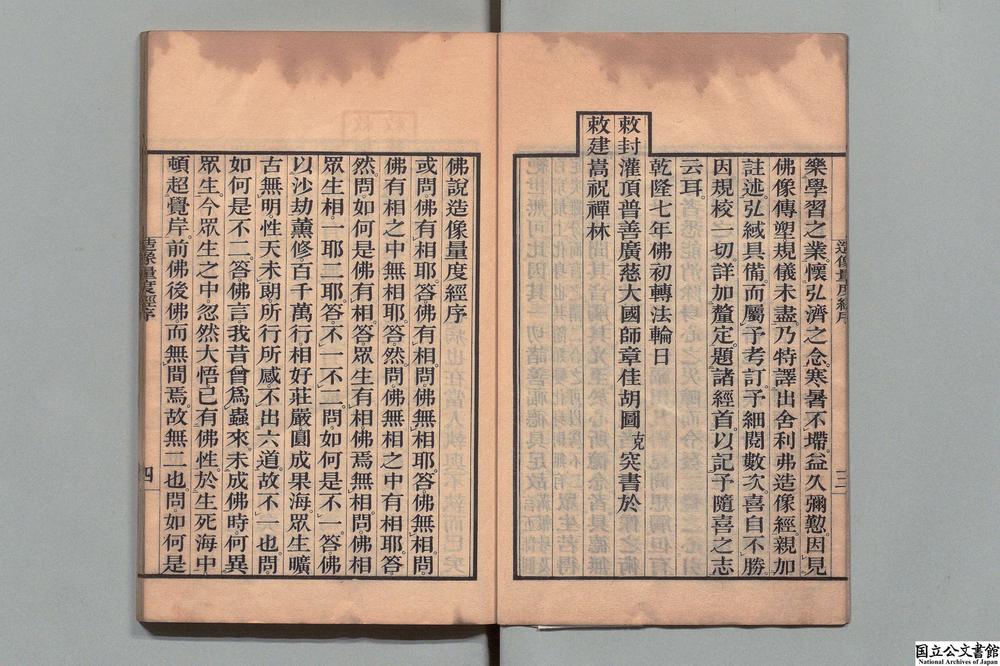 樂學習之業。懷弘濟之念。寒暑不㙷。益久彌懃。因見
佛像傳塑規儀未盡。乃特譯出舍利弗造像經。親加
註述。弘緘具備。而屬予考訂。予細閱數次。喜自不勝。
因規校一切。詳加釐定。題諸經首。以記予隨喜之志
云耳。
乾隆七年佛初轉法輪日
敕封灌頂普善廣慈大國師章佳胡圖克突書於
敕建嵩祝禪林
造像量度經序
三
佛說造像量度經序
或問。佛有相耶。答佛有相。問佛無相耶。答佛無相。問
佛有相之中無相耶。答然。問佛無相之中有相耶。答
然。問如何是佛有相。答眾生有相佛焉無相。問佛相
眾生相。一耶二耶。答不一不二。問如何是不一。答佛
以沙劫薰修。百千萬行。相好莊嚴。圓成果海。眾生曠
古無明。性天未朗。所行所感。不出六道。故不一也。問
如何是不二。答佛言。我昔曾為蟲來。未成佛時。何異
眾生。今眾生之中。忽然大悟。已有佛性。於生死海中。
頓超覺岸。前佛後佛。而無間焉。故無二也。問如何是
造像量度經序
四
国立公文書館
National Archives of Japan